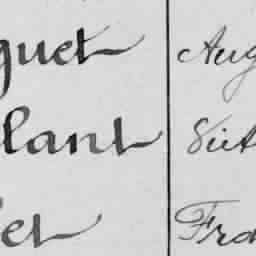 guet Aug
lant Vict
let Fran